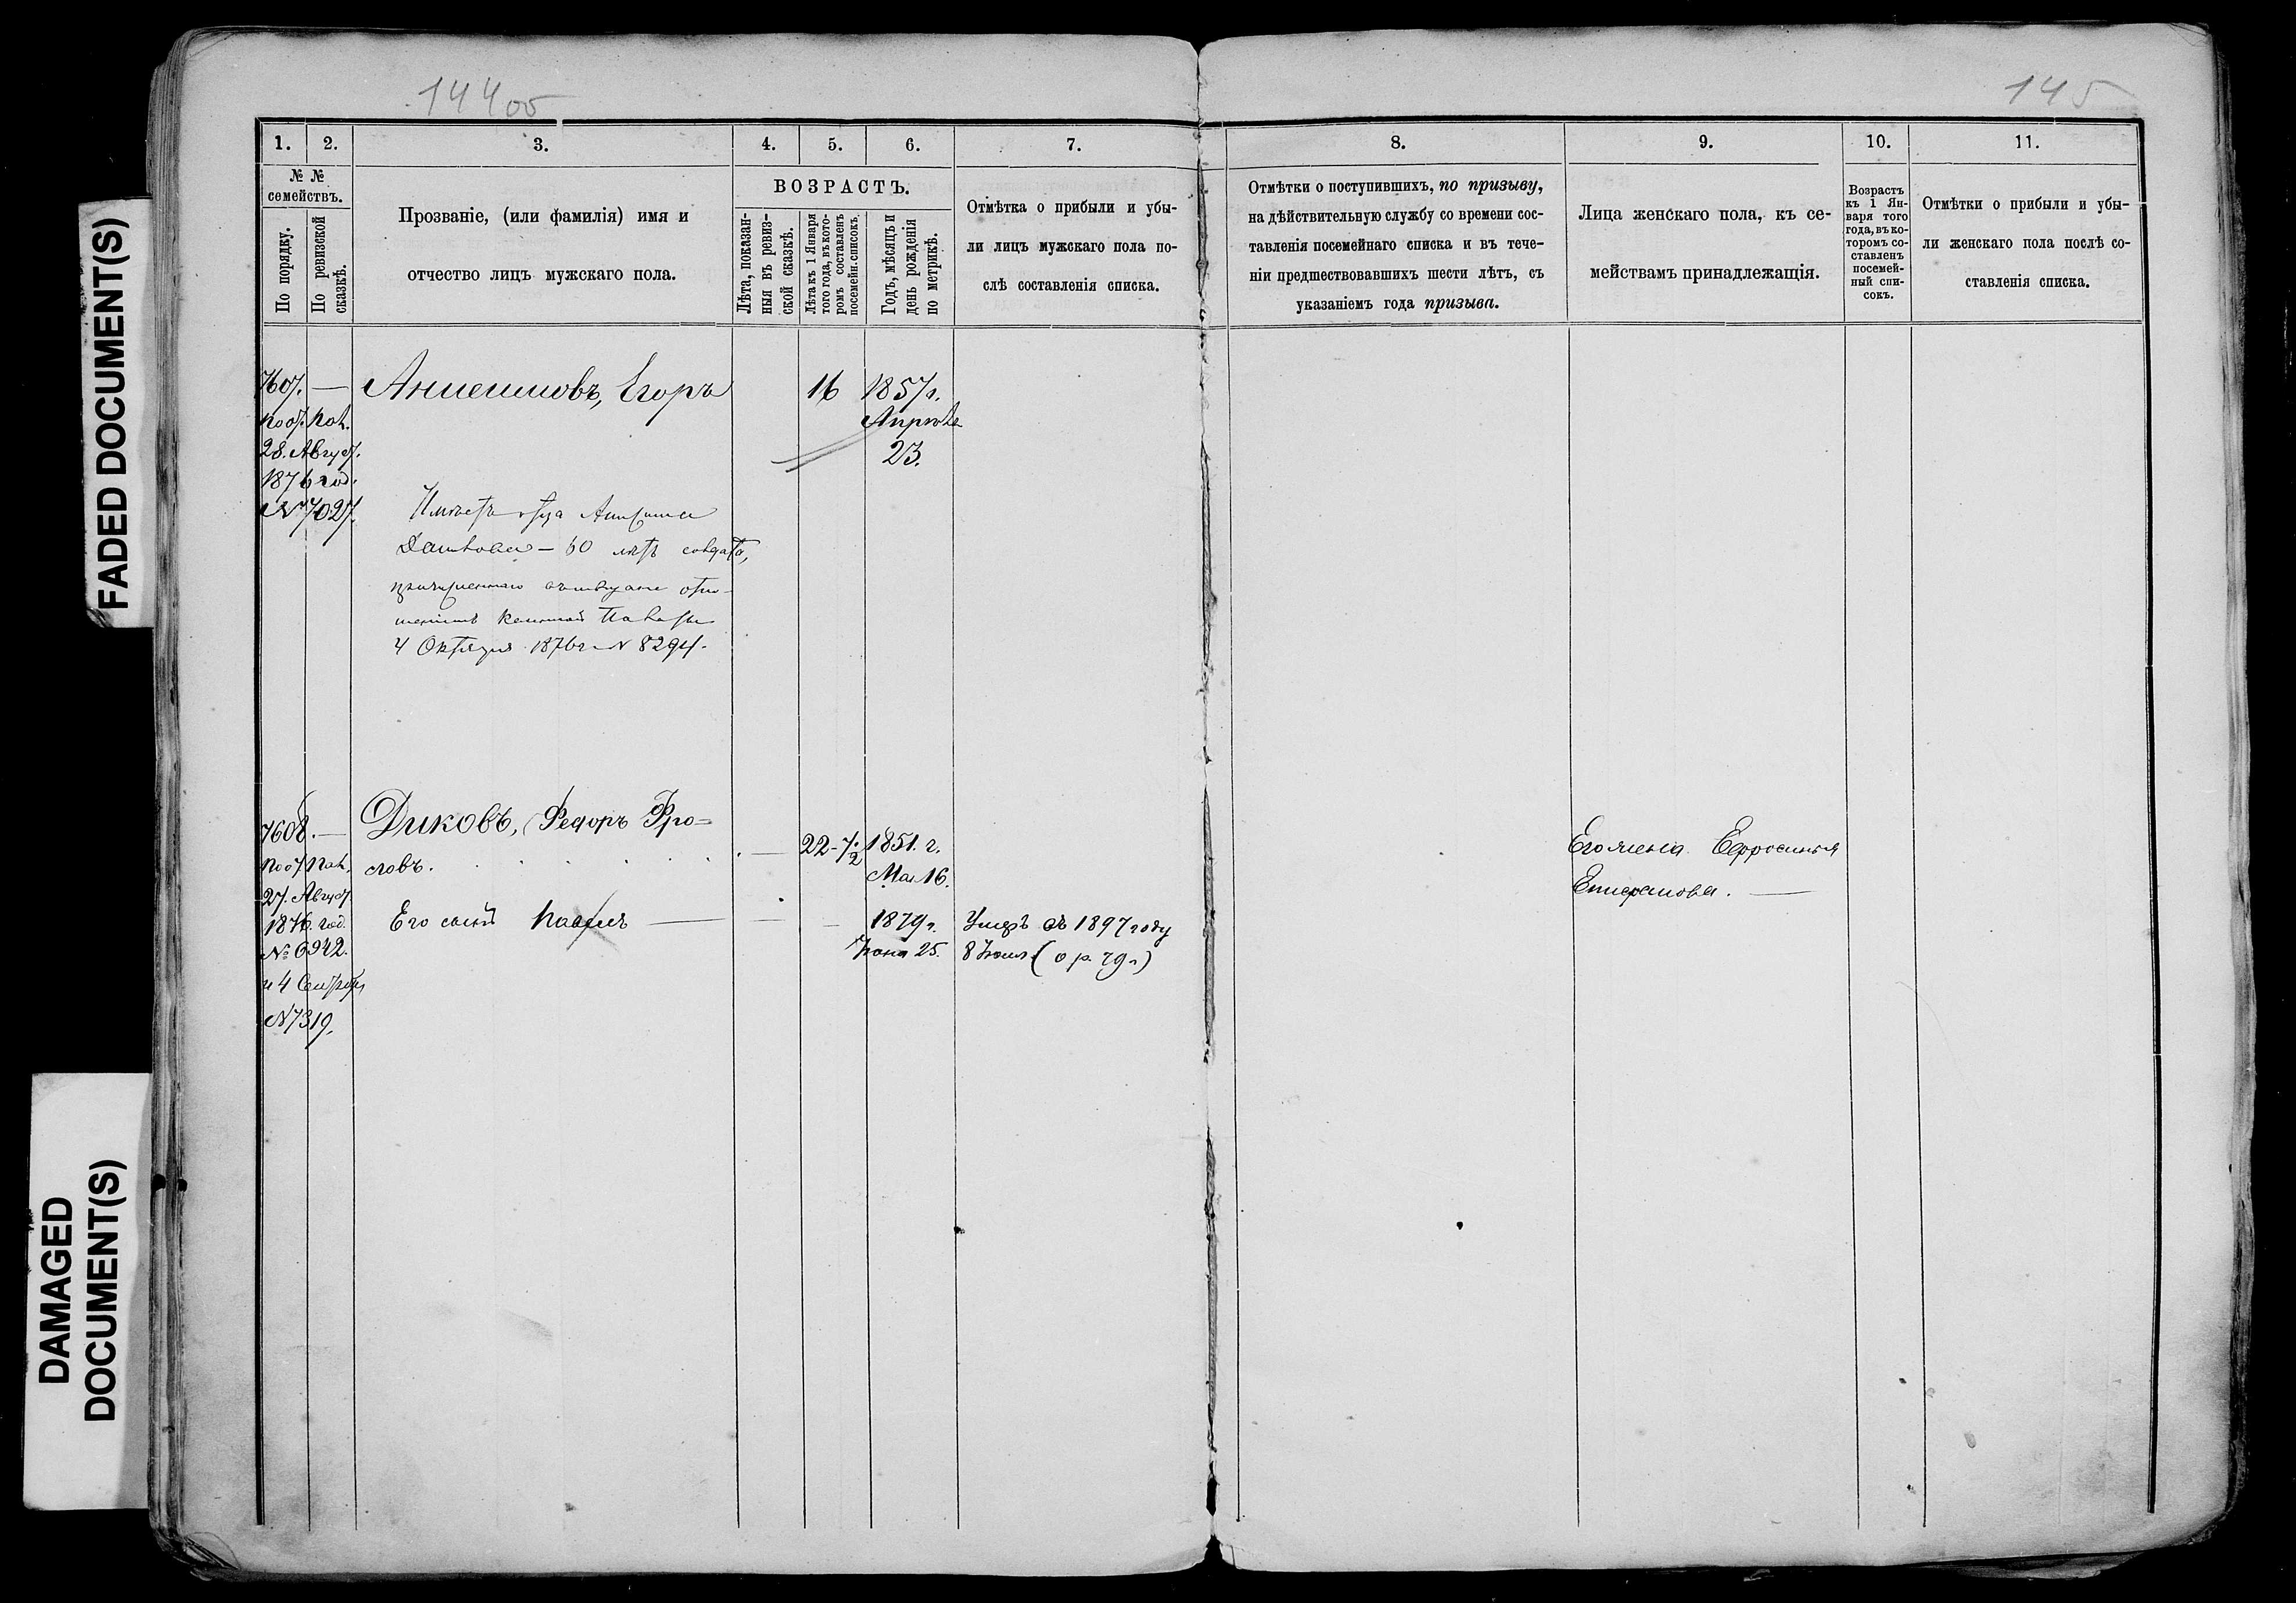 FADED DOCUMENT(S)
DAMAGED
DOCUMENT(S)
144 об
1.
2.
3.
4.
5.
6.
7.
№ №
семействъ.
По порядку.
По ревизской
сказкѣ.
Прозваніе, (или фамилія) имя и
отчество лицъ мужскаго пола.
ВОЗРАСТЪ.
Лѣта, показан-
ныя въ ревиз-
ской сказкѣ.
Лѣта къ 1 Января
того года, въ кото-
ромъ составленъ
посемейн. списокъ.
Годъ, мѣсяцъ и
день рожденія
по метрикѣ.
Отмѣтка о прибыли и убы-
ли лицъ мужскаго пола по-
слѣ составленія списка.
7607. —
Егоръ
16
1857 г.
Апрѣля
23.
28. Август.
1876 год.
№ 7027.
Имѣетъ отца
60 лѣтъ солдата,
Казенной Палаты
4 Октября 1876 г. № 8294.
7608. —
Диковъ, Федоръ Фро=
ловъ.
22-7/2
1851. г.
Мая 16.
27. Август.
1876. год.
№ 6942.
и 4 Сентября
№ 7319.
Его сынъ Павелъ —
1879 г.
Іюня 25.
Умеръ въ 1897 году
8 Іюля (о р. 79 г)
145
8.
9.
10.
11.
Отмѣтки о поступившихъ, по призыву,
на дѣйствительную службу со времени сос-
тавленія посемейнаго списка и въ тече-
ніи предшествовавшихъ шести лѣтъ, съ
указаніемъ года призыва.
Лица женскаго пола, къ се-
мействамъ принадлежащія.
Возрастъ
къ 1 Ян-
варя того
года, въ ко-
торомъ со-
ставленъ
посемей-
ный спи-
сокъ.
Отмѣтки о прибыли и убы-
ли женскаго пола послѣ со-
ставленія списка.
Его жена Ефросинья
Епифанова. —